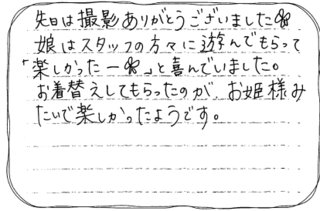 先日は撮影ありがとうございました🌼
娘はスタッフの方々に遊んでもらって
「楽しかったー🌼」と喜んでいました。
お着替えしてもらったのが、お姫様み
たいで楽しかったようです。